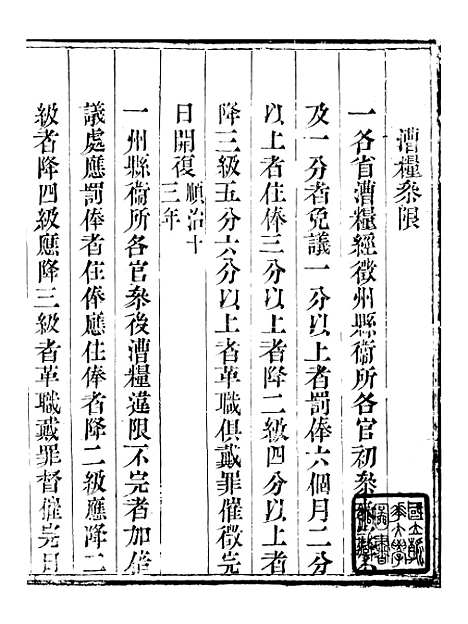 漕糧叅限
一各省漕糧經徵州縣衞所各官初叅
及一分者免議一分以上者罰俸六個月二分
以上者住俸三分以上者降二級四分以上者
降三級五分六分以上者革職俱戴罪催徵完
日開復順治十三年
一州縣衞所各官叅後漕糧違限不完者加倍
議處應罰俸者住俸應住俸者降二級應降二
級者降四級應降三級者革職戴罪督催完日